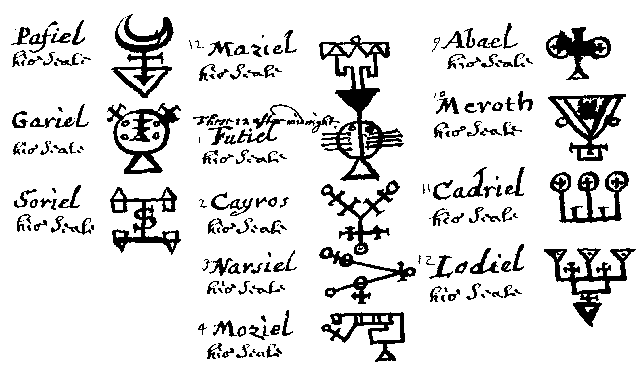 Pafiel
his Seale
Gariel
his Seale
Soriel
his Seale
12 Maziel
his Seale
These 12 after midnight
1 Futiel
his Seale
2 Cayros
his Seale
3 Narsiel
his Seale
4 Moziel
his Seale
9 Abael
his Seale
10 Meroth
his Seale
11 Cadriel
his Seale
12 Lodiel
his Seale